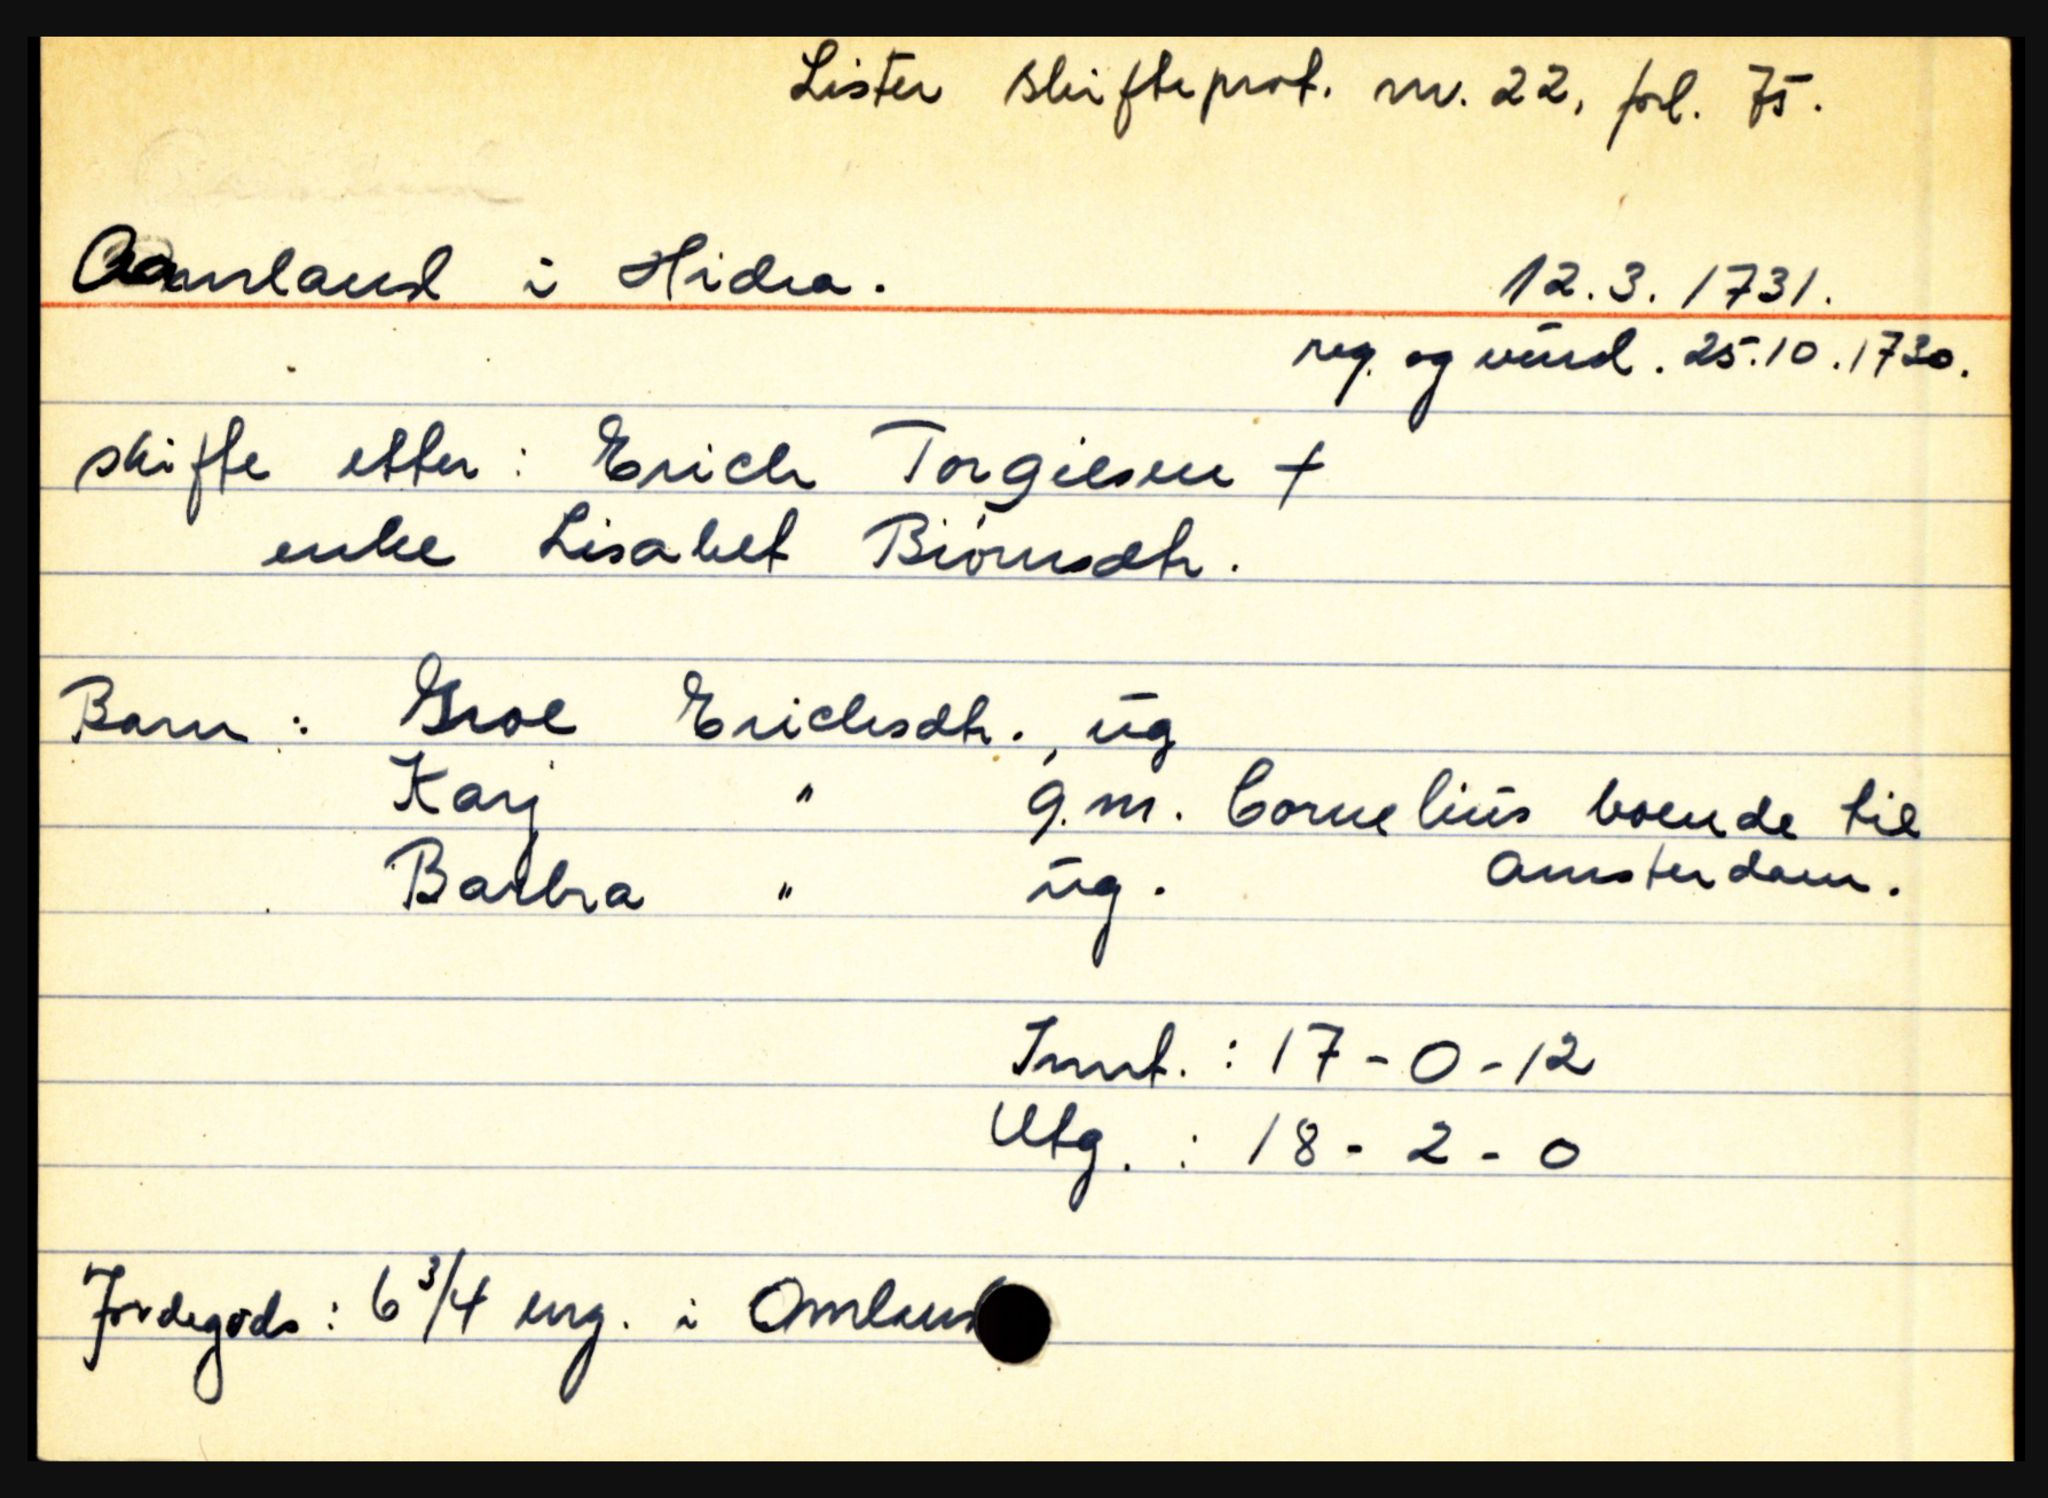 Lister skifteprot. nr. 22, fol. 75.
Aamland i Hidra. 12.3.1731.
reg. og vurd. 25.10.1730.
skifte etter: Erich Torgilsen +
enke Lisabet Biørnsdtr.
Barn: Groe Erichsdtr., ug
Karj " g.m. Cornelius boende til
Amsterdam.
Barbra " ug.
Innt.: 17-0-12
Utg.: 18-2-0
Jordegods: 6 3/4 eng. i Omland